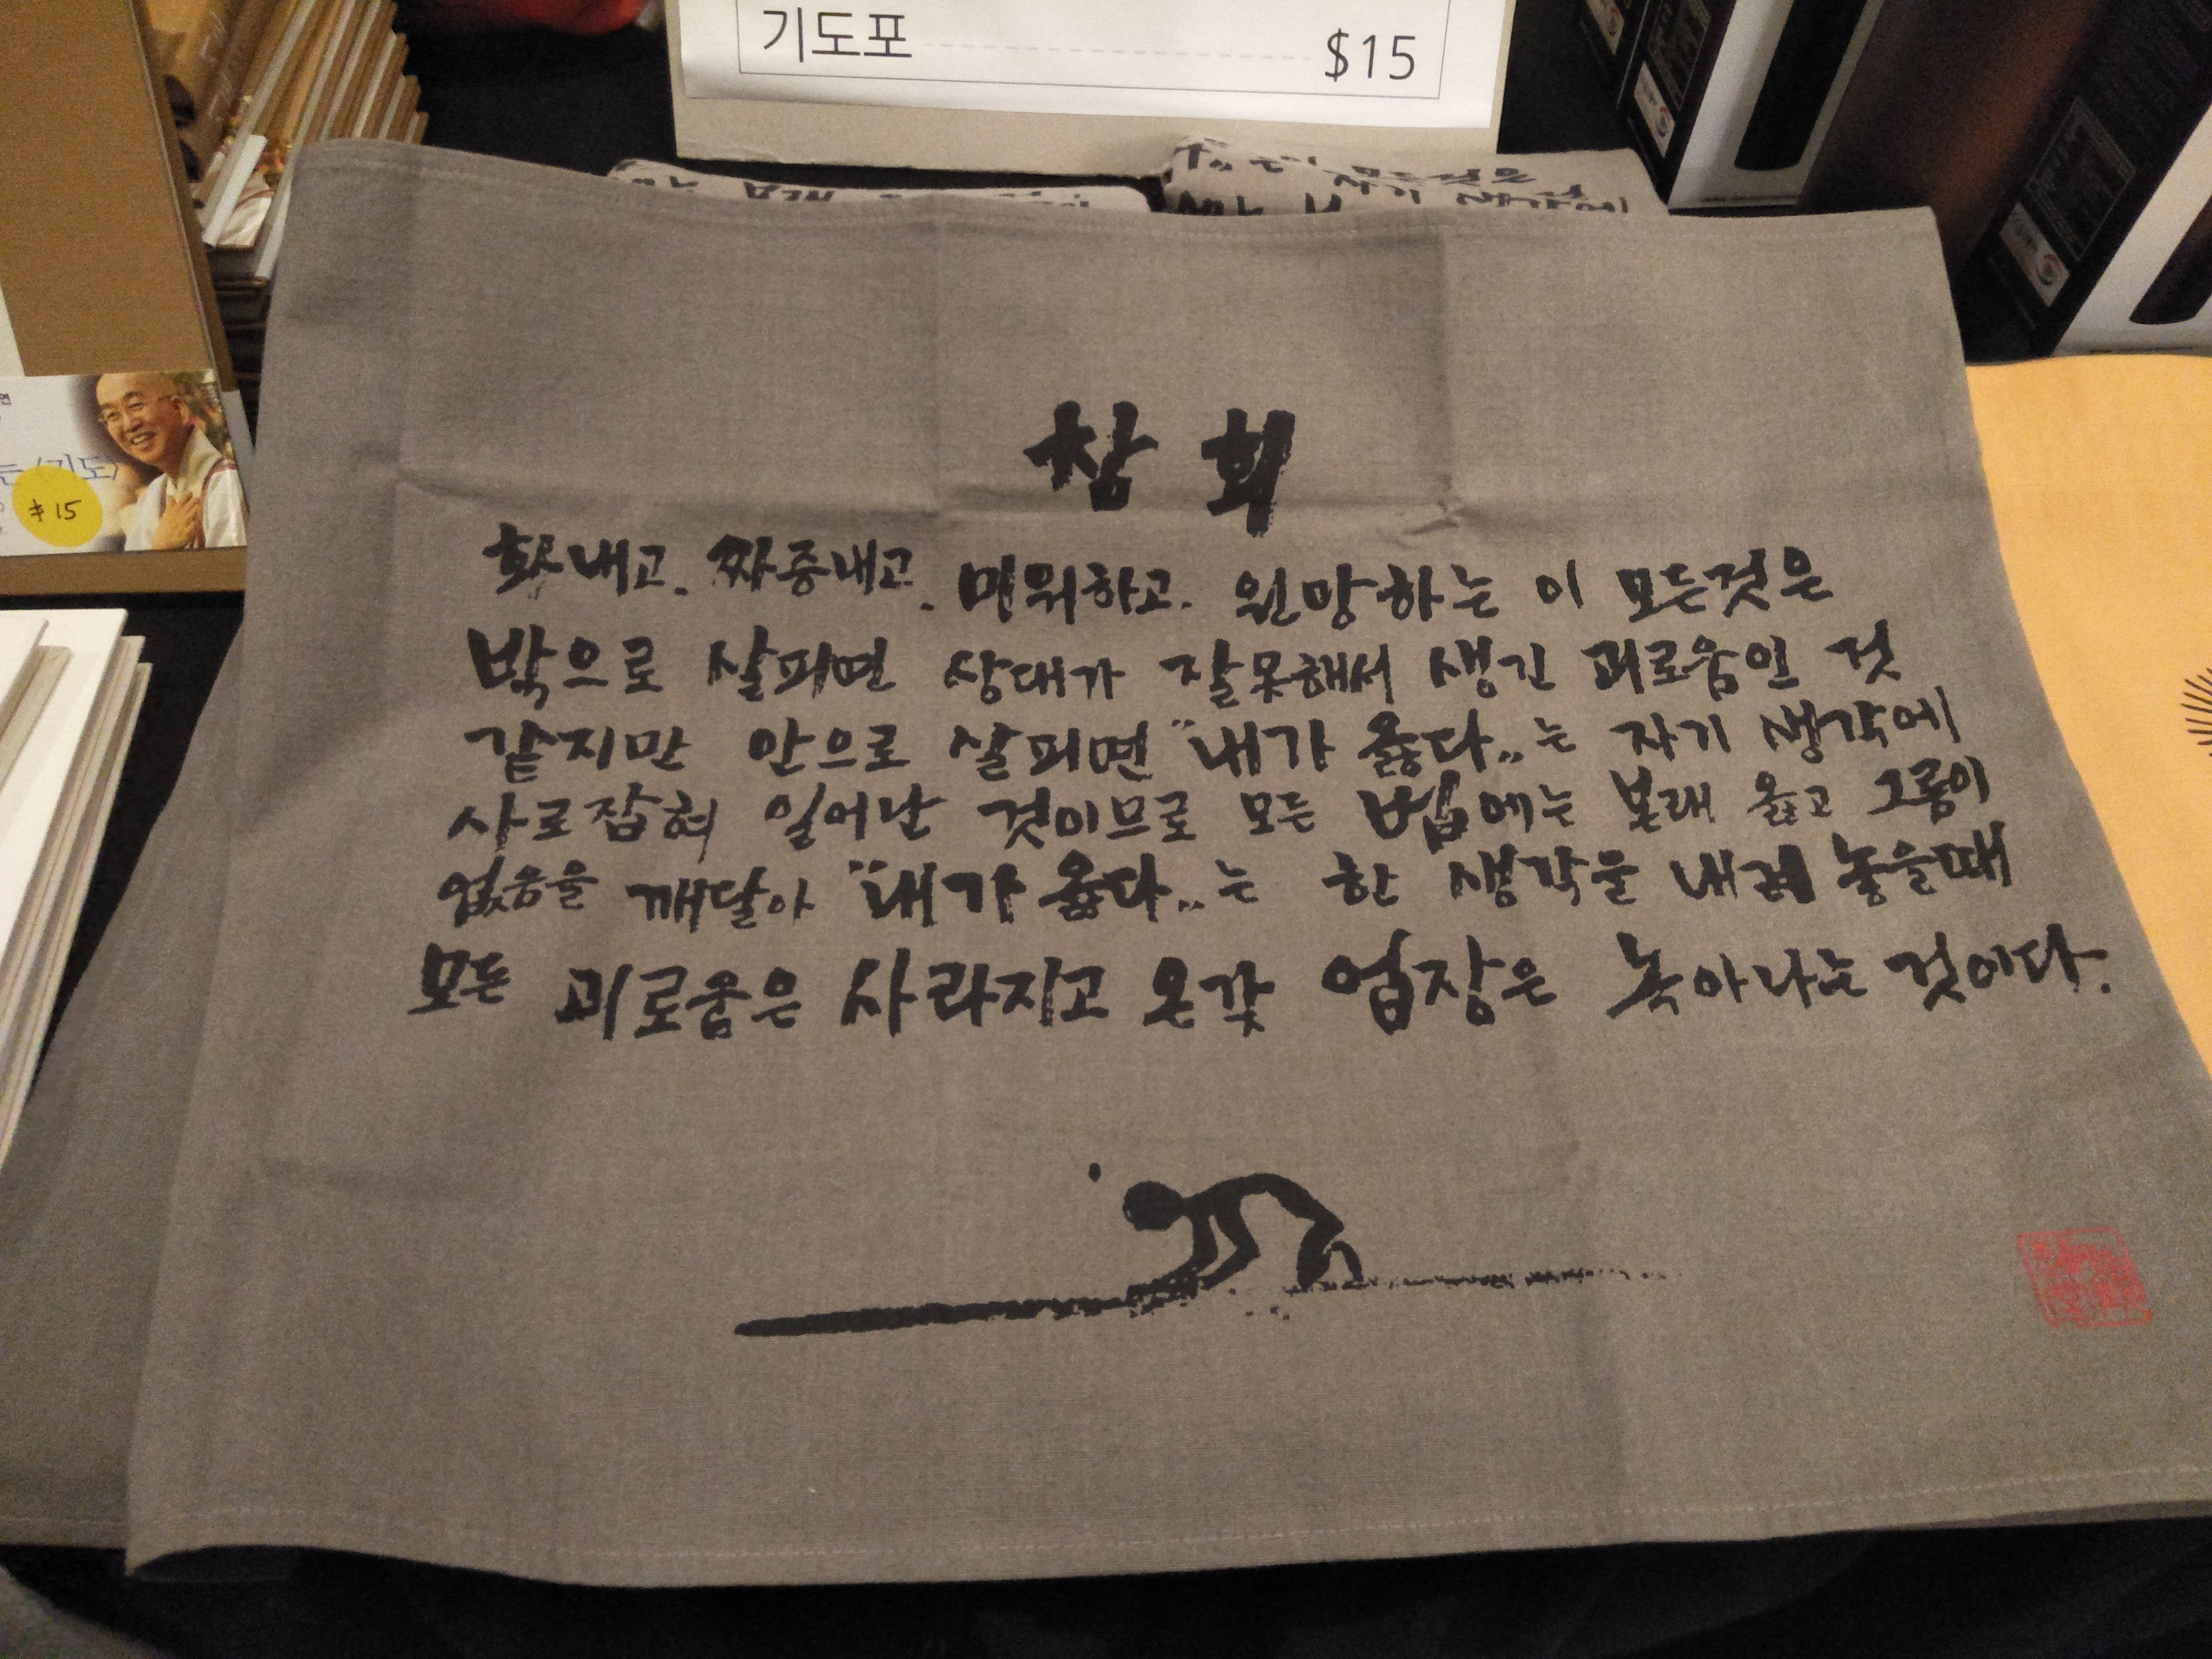 기도포 $15
참 회
화내고. 짜증내고. 미워하고. 원망하는 이 모든것은
밖으로 살피면 상대가 잘못해서 생긴 괴로움인 것
같지만 안으로 살피면 "내가 옳다"는 자기 생각에
사로잡혀 일어난 것이므로 모든 법에는 본래 옳고 그름이
없음을 깨달아 "내가 옳다"는 한 생각을 내려 놓을때
모든 괴로움은 사라지고 온갖 업장은 녹아나는 것이다.
는 <기도>
$15